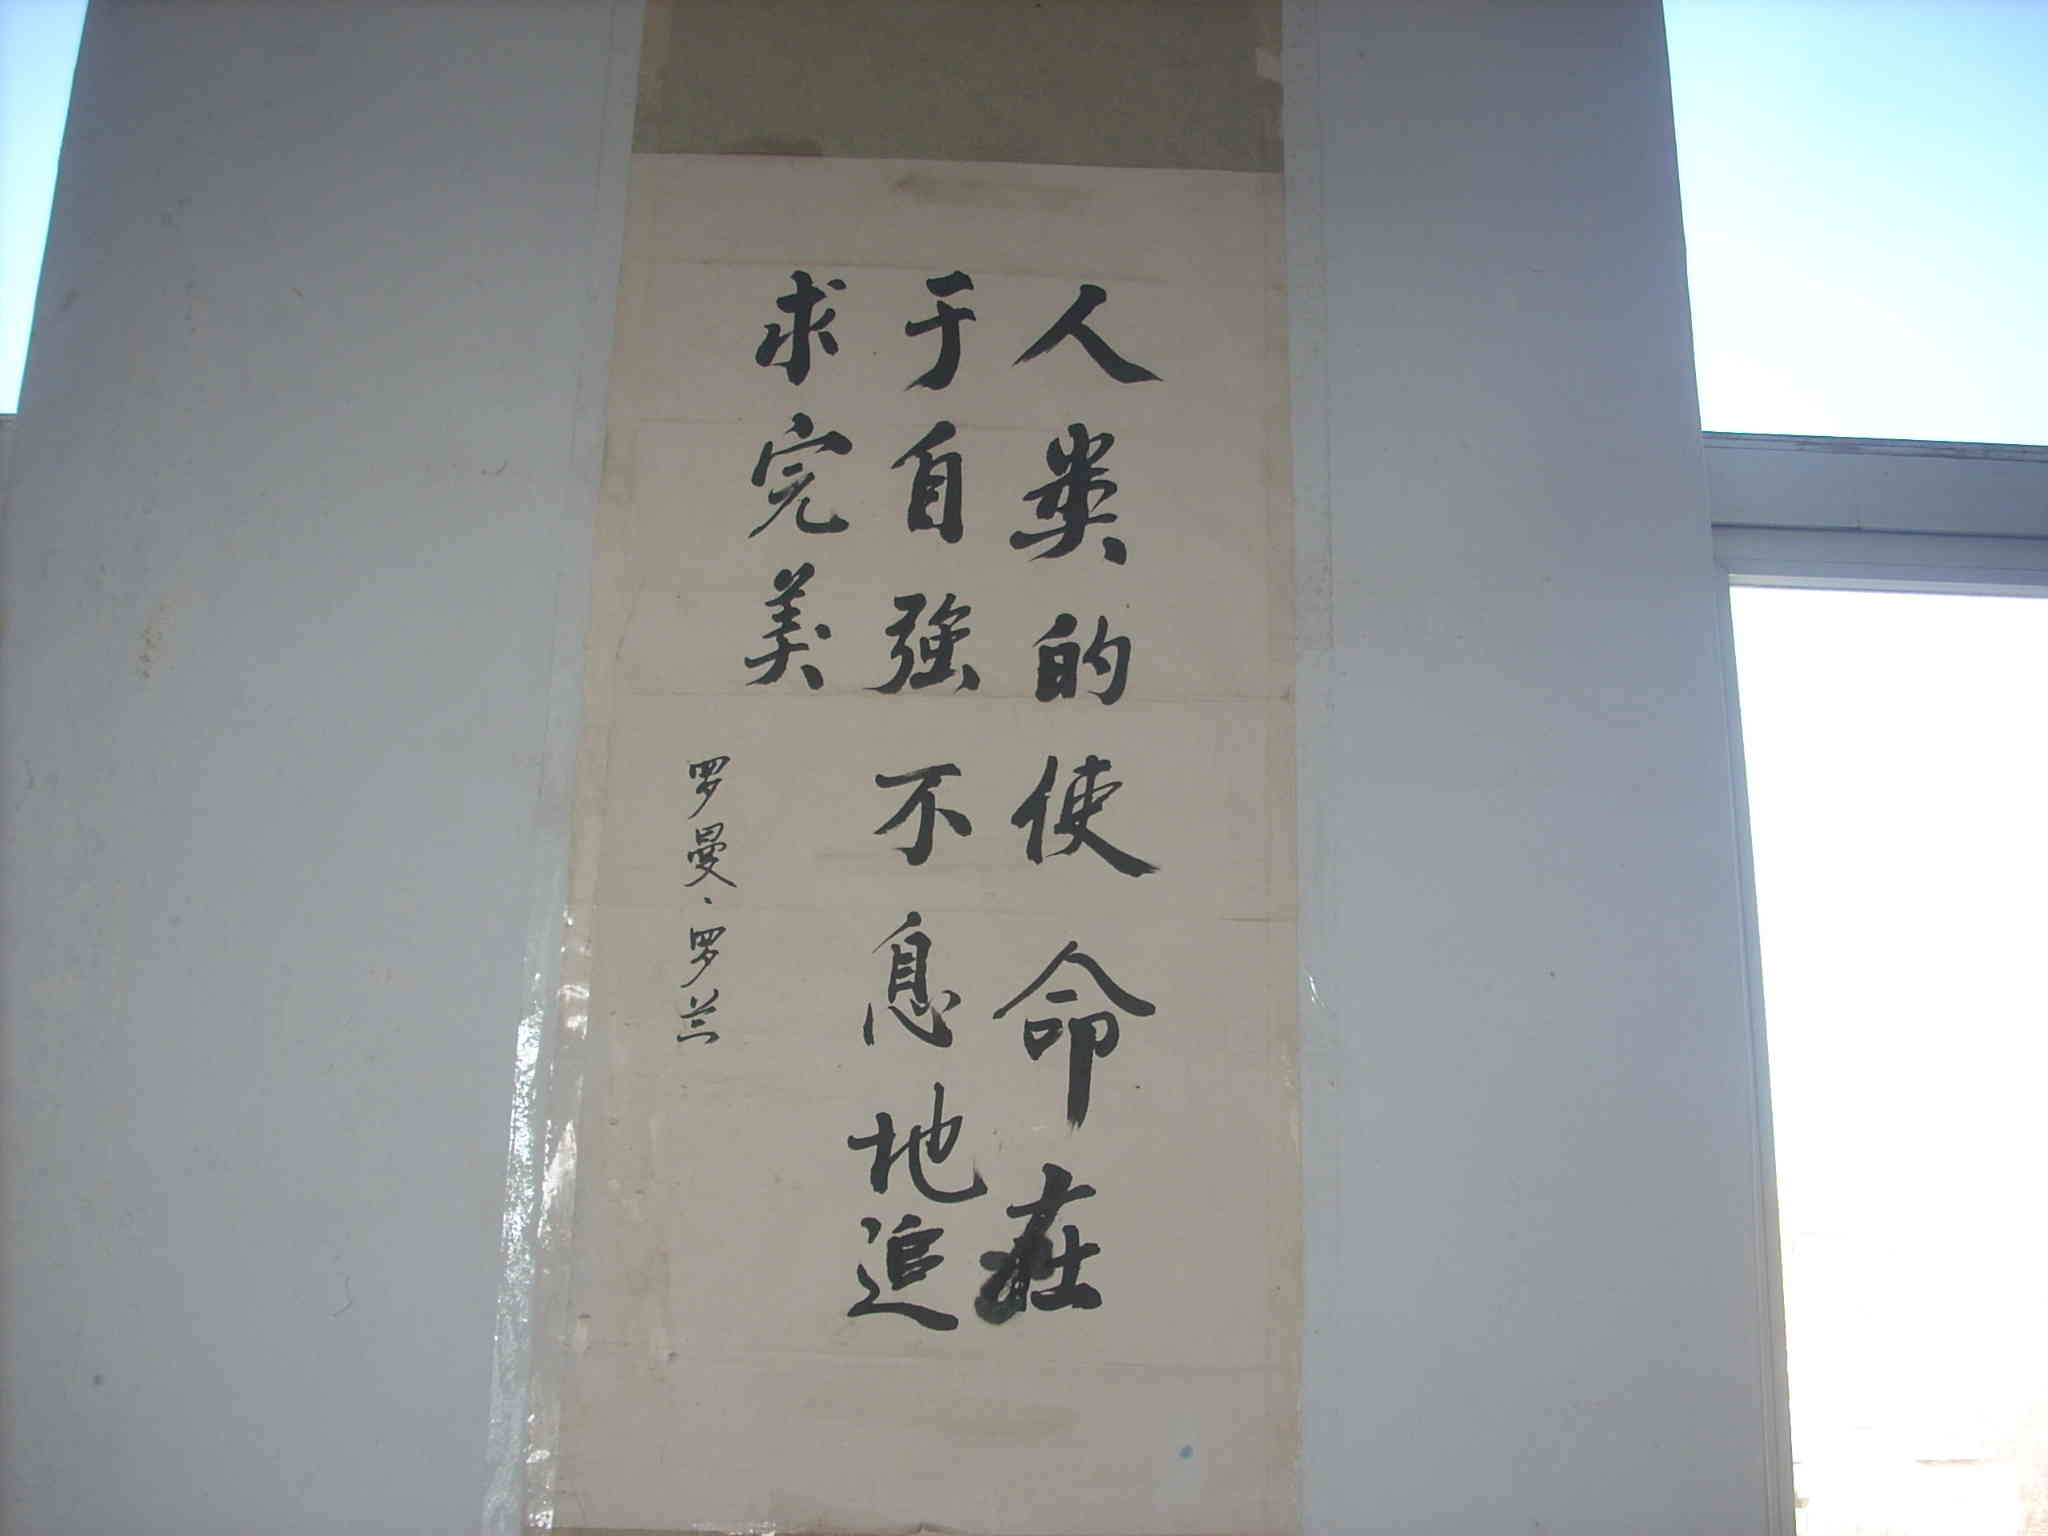 人类的使命在
于自强不息地追
求完美
罗曼·罗兰